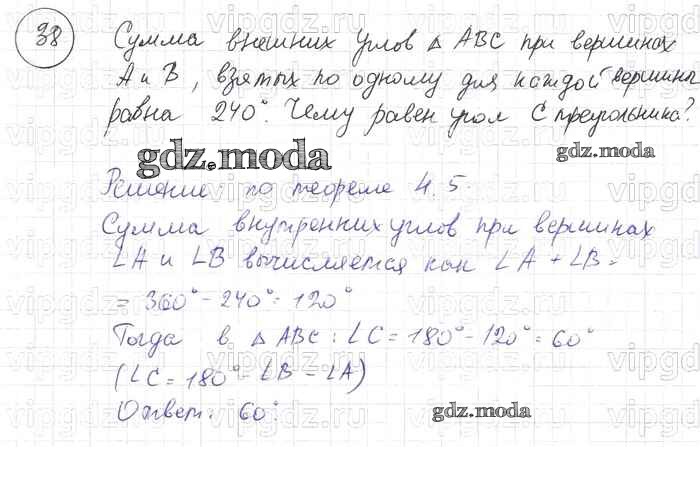 38 Сумма внешних углов △ ABC при вершинах
A и B, взятых по одному для каждой вершины
равна 240°. Чему равен угол C треугольника?
gdz.moda
gdz.moda
Решение: по теореме 4.5.
Сумма внутренних углов при вершинах
∠A и ∠B вычисляется как ∠A + ∠B =
= 360° - 240° = 120°
Тогда в △ ABC : ∠C = 180° - 120° = 60°
(∠C = 180° - ∠B - ∠A)
Ответ: 60°.
gdz.moda